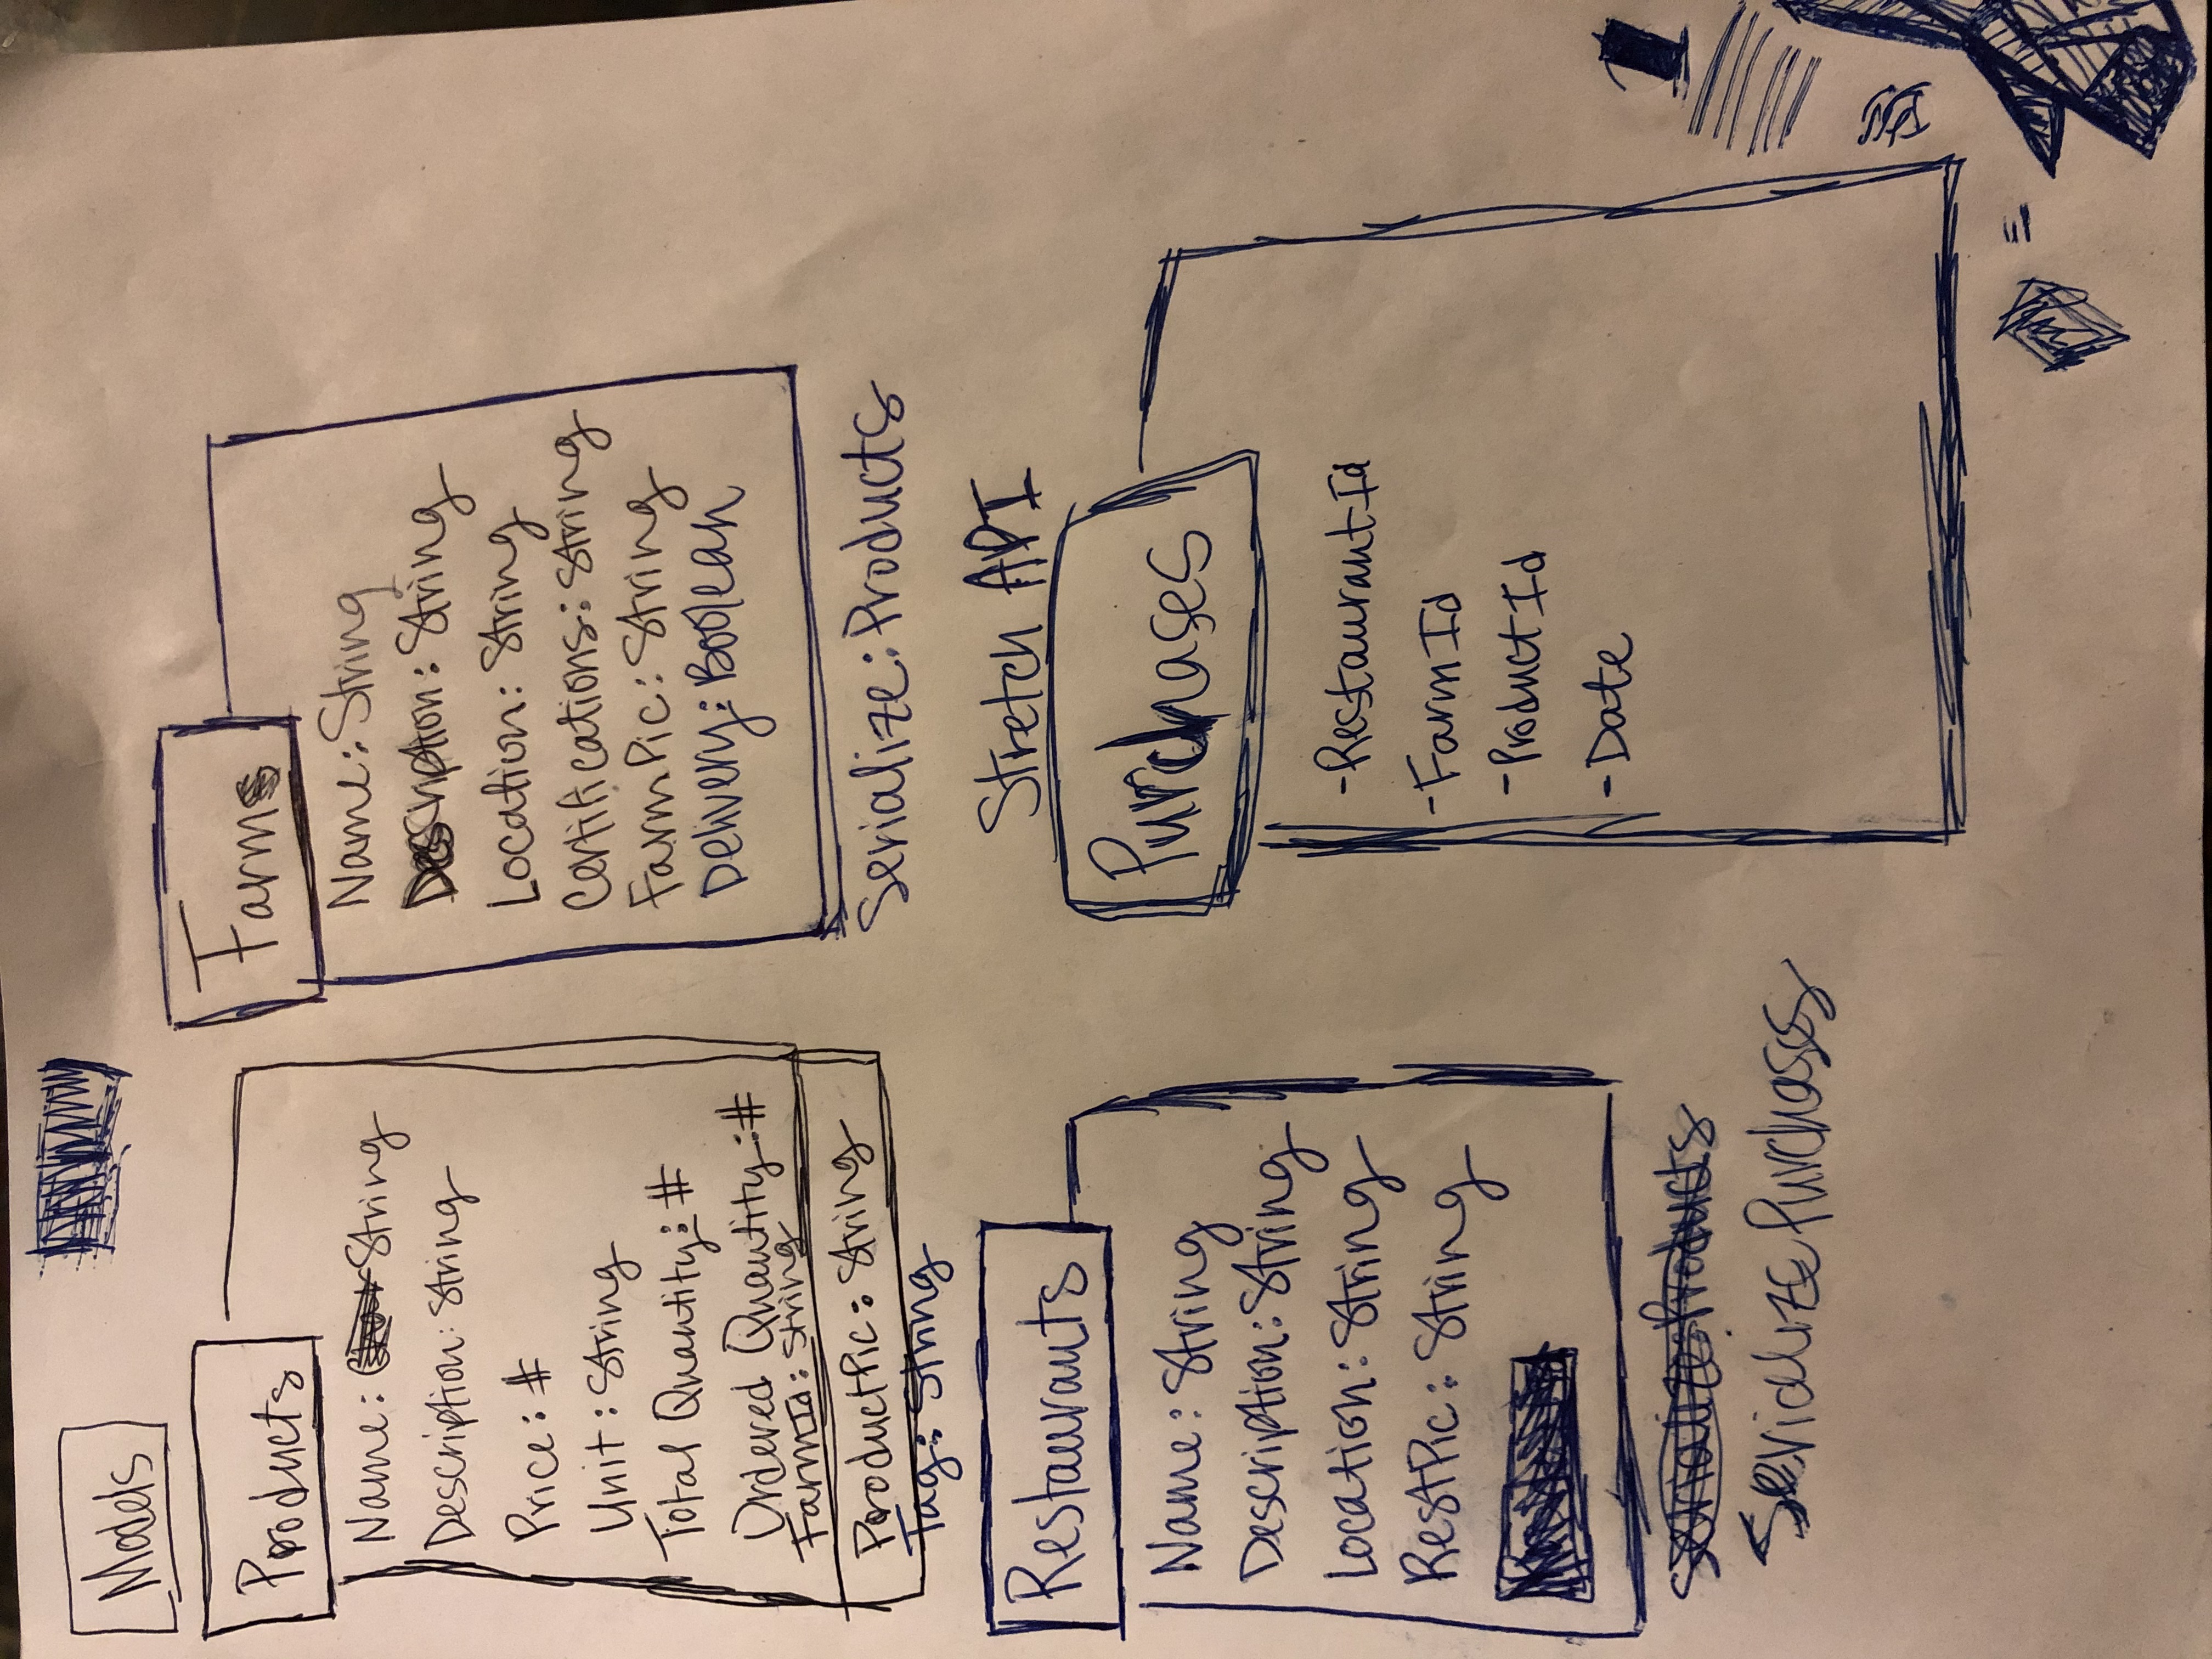 Models
Products
Name: String
Description: String
Price: #
Unit: String
Total Quantity: #
Ordered Quantity: #
FarmId: String
ProductPic: String
Tag: String
Farms
Name: String
Description: String
Location: String
Certifications: String
FarmPic: String
Delivery: Boolean
Serialize: Products
Restaurants
Name: String
Description: String
Location: String
RestPic: String
Serialize: Products
Serialize Purchases
Stretch API
Purchases
-RestaurantId
-FarmId
-ProductId
-Date